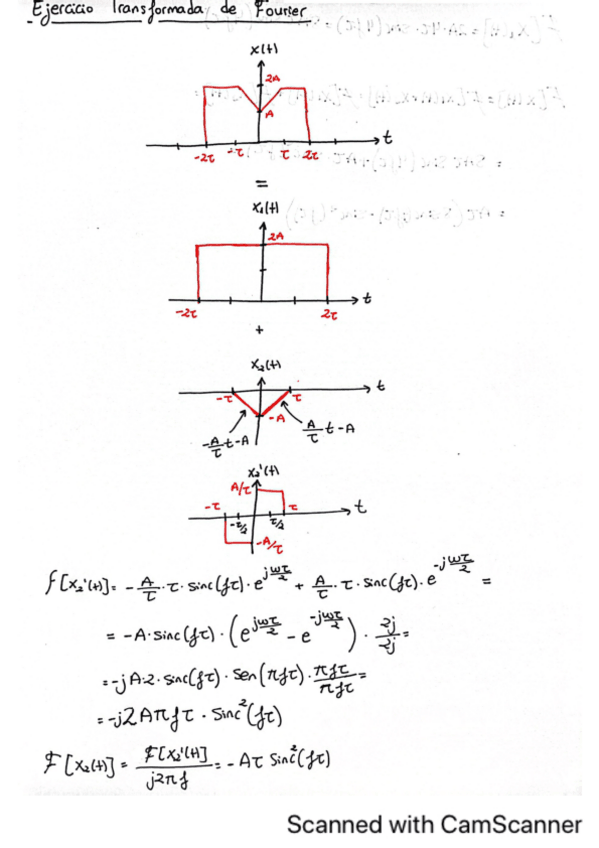 Ejercicio Transformada de Fourier
x(t)
2A
A
-2τ -τ τ 2τ t
=
x₁(t)
2A
-2τ 2τ t
+
x₂(t)
t
-τ τ
-A
-A/τ t-A A/τ t-A
x₂'(t)
A/τ
-τ τ t
-τ/2 τ/2
-A/τ
F[x₂'(t)] = -A/τ · τ · sinc(fτ) · e^(jωτ/2) + A/τ · τ · sinc(fτ) · e^(-jωτ/2) =
= -A · sinc(fτ) · (e^(jωτ/2) - e^(-jωτ/2)) · 2j/2j =
= -jA·2 · sinc(fτ) · sen(πfτ) · πfτ/πfτ =
= -j2Aπfτ · sinc²(fτ)
F[x₂(t)] = F[x₂'(t)]/j2πf = -Aτ sinc²(fτ)
Scanned with CamScanner